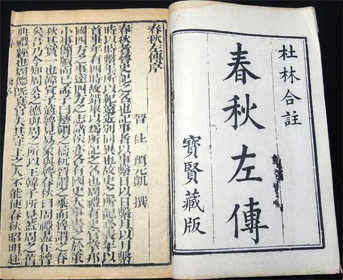 杜林合註
春秋左傳
寶賢藏版
春秋左傳序
晉 杜 預元凱 撰
春秋者魯史記之名也記事者以事繫日以日繫月以月繫
時以時繫年所以紀遠近別同異也故史之所記必表年以
首事年有四時故錯舉以為所記之名也周禮有史官掌邦
國四方之事達四方之志諸侯亦各有國史大事書之於策
小事簡牘而已孟子曰楚謂之檮杌晉謂之乘而魯謂之春
秋其實一也韓宣子適魯見易象與魯春秋曰周禮盡在魯
矣吾乃今知周公之德與周之所以王韓子所見蓋周之舊
典禮經也周德既衰官失其守上之人不能使春秋昭明赴